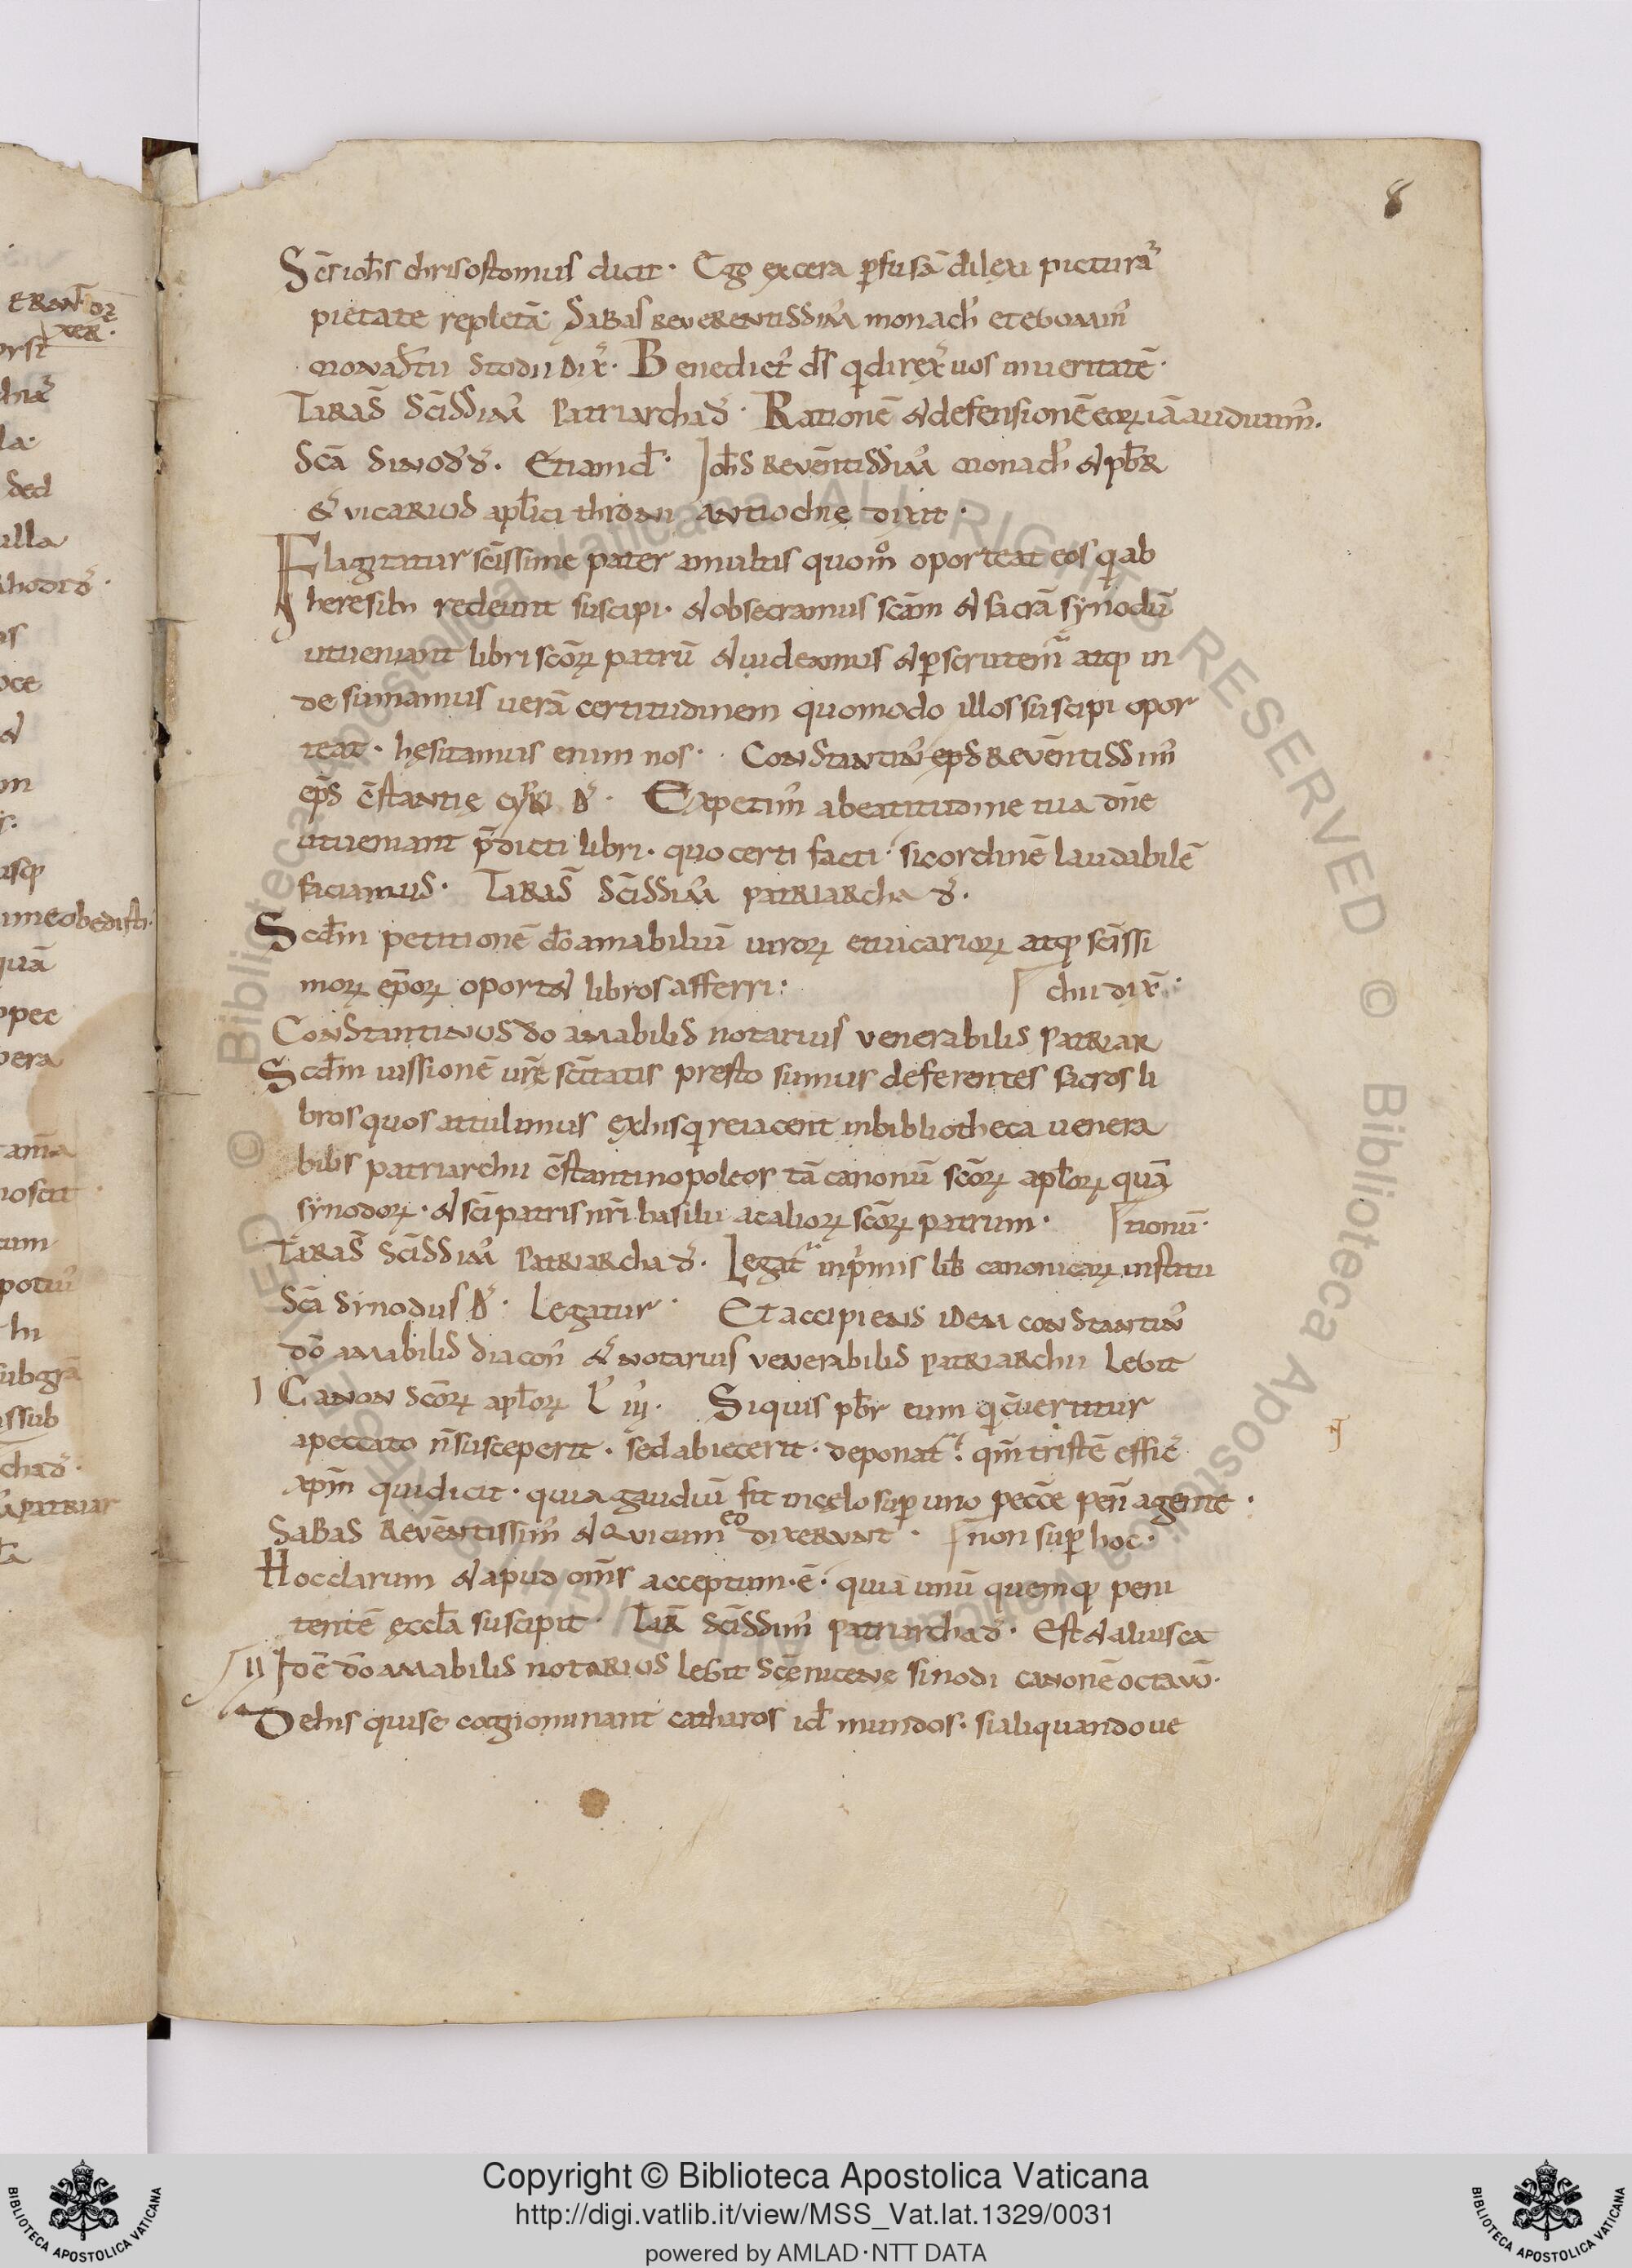 8
Sc̄s ioh̄s chrisostomus dicit · Ego ex cera ꝑfusā dilexi picturā
pietate repletā · SaBas ReverentissimꝰC monachꝰ et egomīnꝰ
monastīi Studii dix̄ · Benedictꝰ ds̄ q direx̄ uos in ueritatē ·
Taras̄ Sc̄issimꝰ Patriarcha d̄ · Rationē & defensionē eorꝝ iā audiuimꝰ ·
Sc̄a Sinodꝰ d̄ · Etiam d̄ · Ioh̄s Revēntissimꝰ monachꝰ & pb̄R
& vicarius apl̄ici throni antiochię dixit ·
Flagitatur sc̄issime pater a multis quom̊ oporteat eos q ab
heresib; redeunt suscipi · & obsecramus sc̄am & sacrā synodū
ut ueniant libri sc̄orꝝ patrū & uideamus & ꝑscrutem̄ atqꝫ in
de sumamus uerā certitudinem quomodo illos suscipi opor
teat · hesitamus enim nos · Constantinꝰ eps̄ Revēntissimꝰ
ep̄s c̄stantię cypri d̄ · Expetimꝰ a beatitudine tua dn̄e
ut ueniant p̄dicti libri · quo certi facti · sic ordinē laudabilē
faciamus · Taras̄ Sc̄issimꝰ patriarcha d̄ ·
Scd̄m petitionē dō amabiliū uirorꝝ et uicariorꝝ atqꝫ sc̄issi
morꝝ ep̄orꝝ oport& libros afferri : chii dix̄ ·
Constantinus dō amabilis notarius venerabilis Patriar
Scd̄m iussionē ur̄ę sc̄itatis presto sumus deferentes sacros li
bros quos attulimus ex his q reiacent in bibliotheca uenera
bilis patriarchii c̄stantinopoleos tā canonū sc̄orꝝ apl̄orꝝ quā
synodorꝝ · & sc̄i patris nr̄i basilii ac aliorꝝ sc̄orꝝ patrum · tionū ·
Taras̄ Sc̄issimꝰ Patriarcha d̄ · Legat̄ inp̄mis lib̄ canonicarꝝ institu
Sc̄a Synodus d̄ · Legatur · Et accipiens idem constantinꝰ
dō amabilis diacon̄ & notarius venerabilis patriarchii legit
I Canon sc̄orꝝ apl̄orꝝ L iij · Si quis pb̄r eum q c̄uertitur
a peccato n̄ susceperit · sed abiecerit · deponat̄ · qm̄ tristē effic̄
xp̄m qui dicit · quia gaudiū fit in cęlo suꝑ uno pecc̄e pen̄ agente ·
Sabas Revēntissimꝰ & qui cum eo dixerunt · non suꝑ hoc ·
Hoc clarum & apud om̄s acceptum · ē · quia unū quemqꝫ peni
tentē ęccl̄a suscipit · Tar̄ Sc̄issimꝰ patriarcha d̄ · Est & alius ca
II Idē dō amabilis notarius legit Sc̄ę nicenę sinodi canonē octavū ·
De his qui se cognominant catharos id̄ mundos · si aliquando ue
Copyright © Biblioteca Apostolica Vaticana
http://digi.vatlib.it/view/MSS_Vat.lat.1329/0031
powered by AMLAD·NTT DATA
BIBLIOTECA APOSTOLICA VATICANA
BIBLIOTECA APOSTOLICA VATICANA